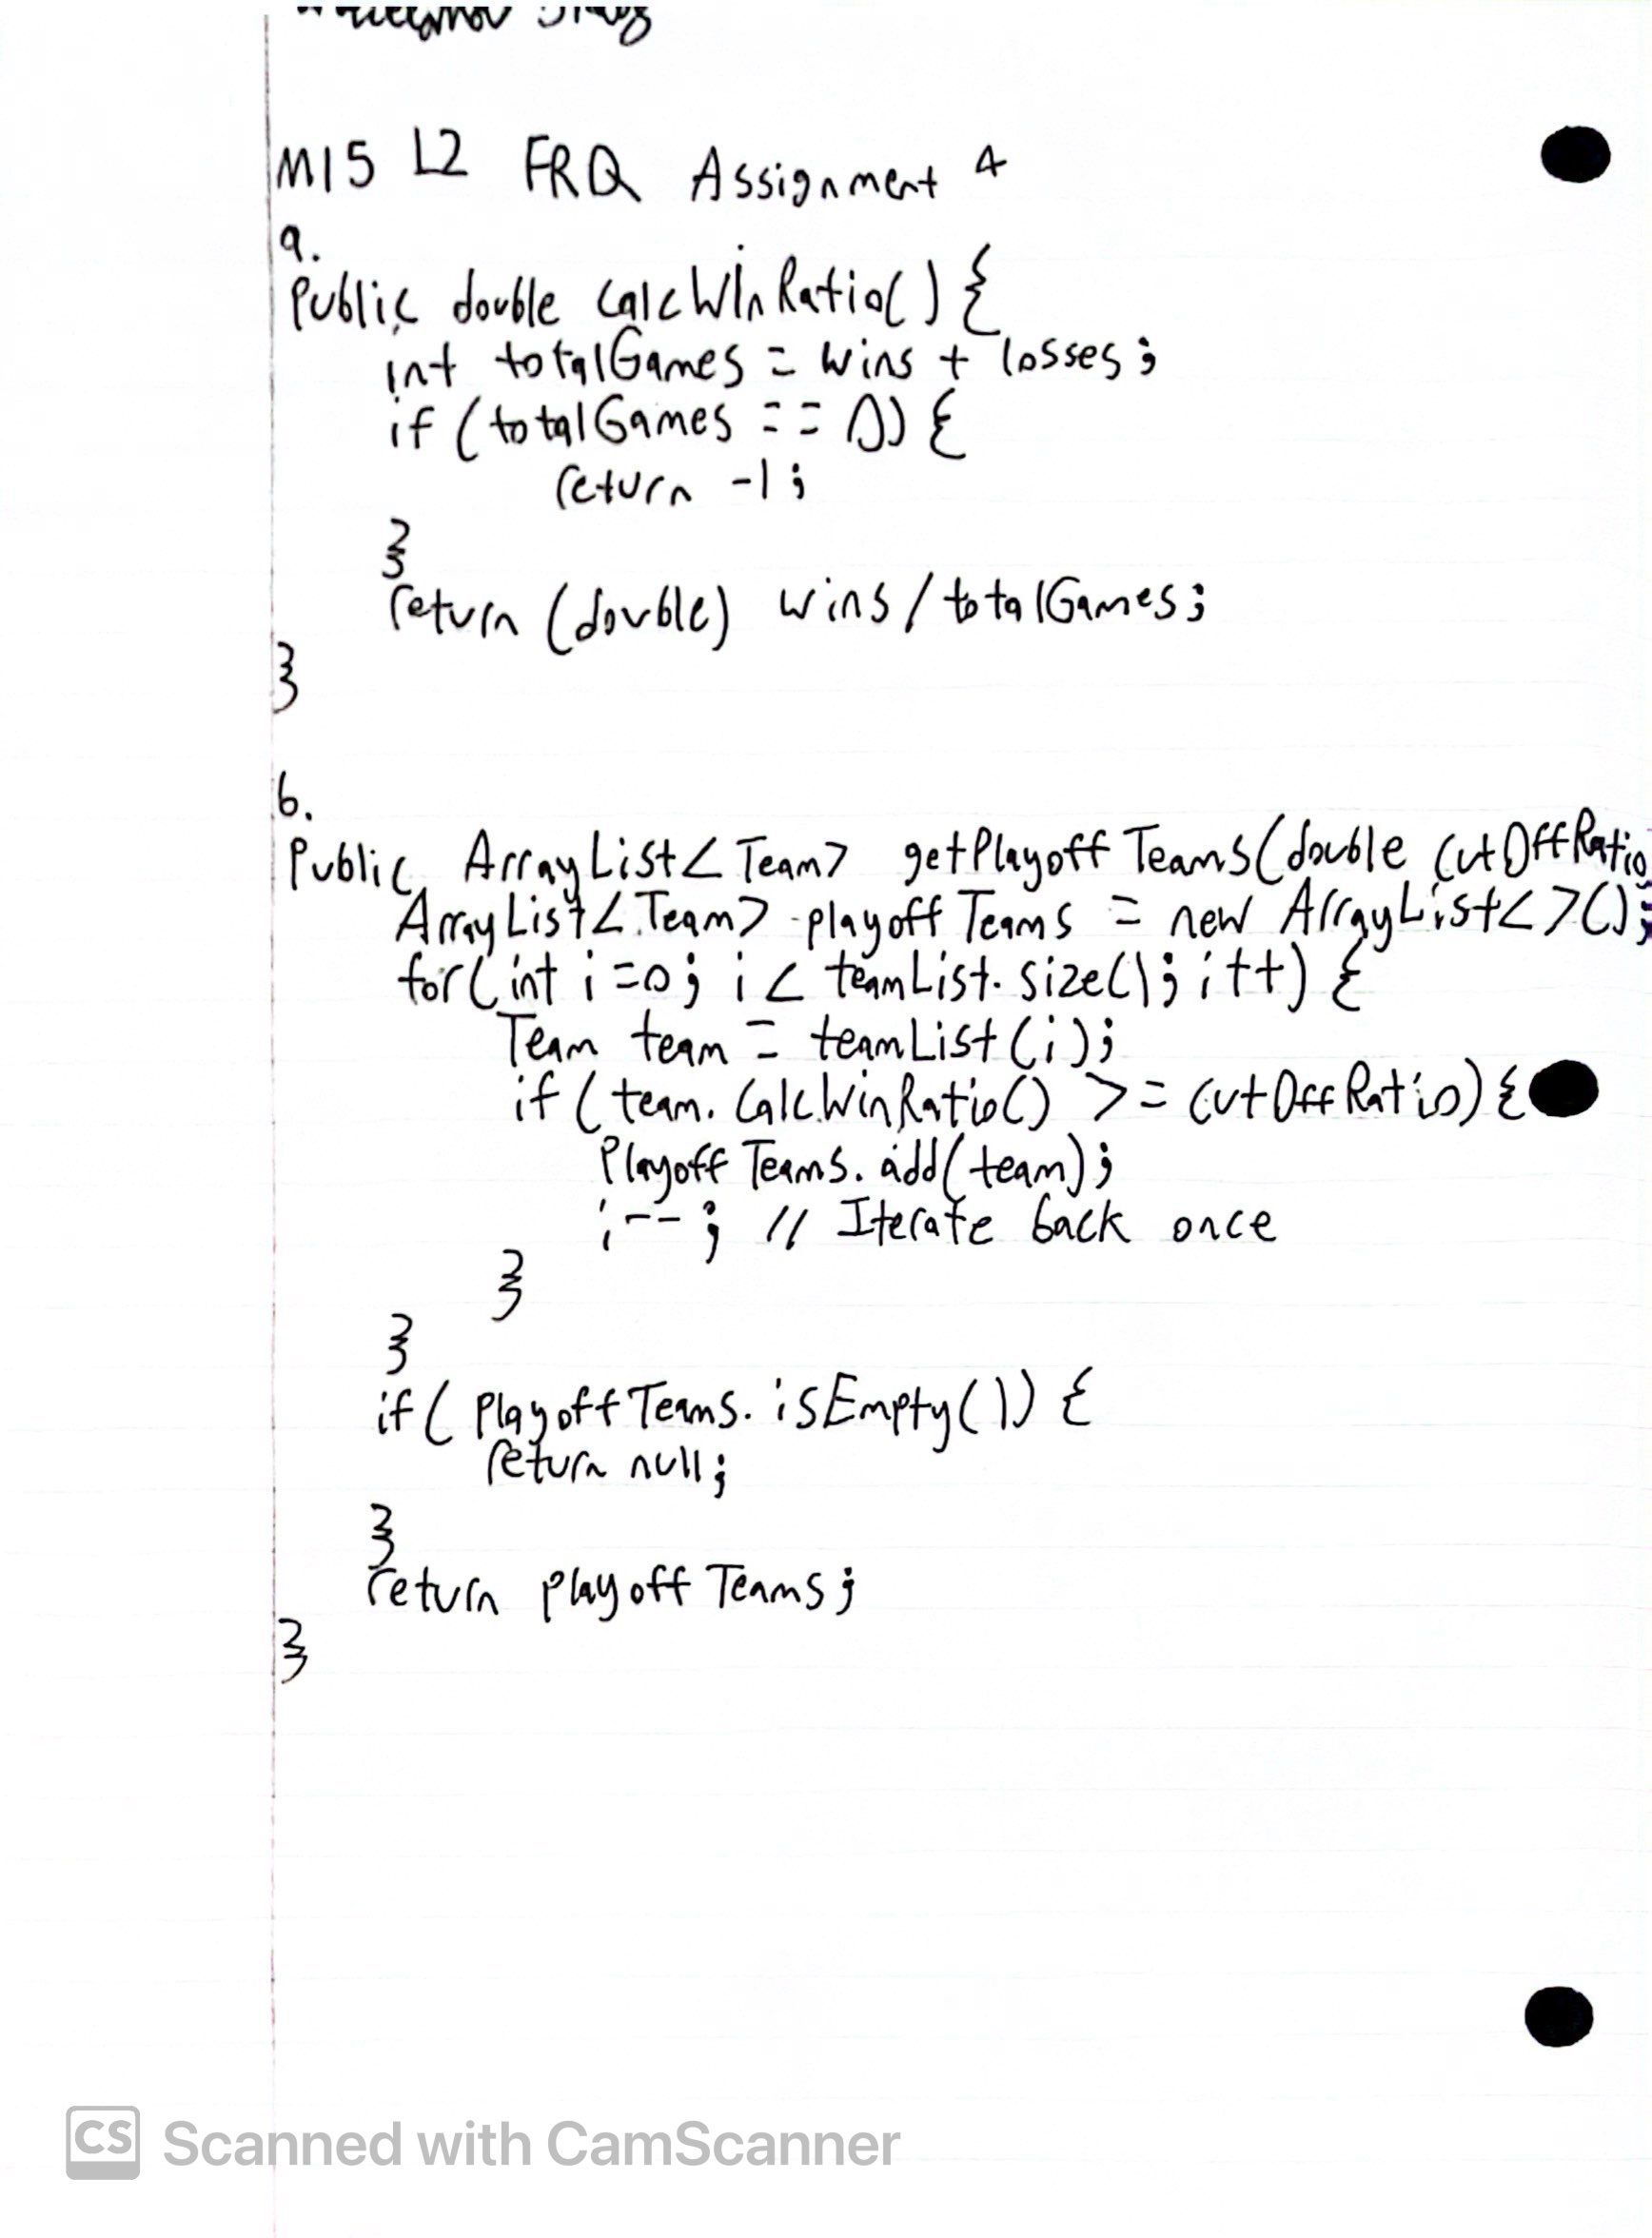 M15 L2 FRQ Assignment 4
a.
Public double calcWinRatio() {
int totalGames = wins + losses;
if (totalGames == 0) {
return -1;
}
return (double) wins/totalGames;
}
b.
Public ArrayList<Team> getPlayoffTeams(double cutOffRatio
ArrayList<Team> playoffTeams = new ArrayList<>();
for(int i=0; i < teamList.size(); i++) {
Team team = teamList(i);
if (team.calcWinRatio() >= cutOffRatio) {
PlayoffTeams.add(team);
i--; // Iterate back once
}
}
if( PlayoffTeams.isEmpty()) {
return null;
}
return playoffTeams;
}
CS Scanned with CamScanner